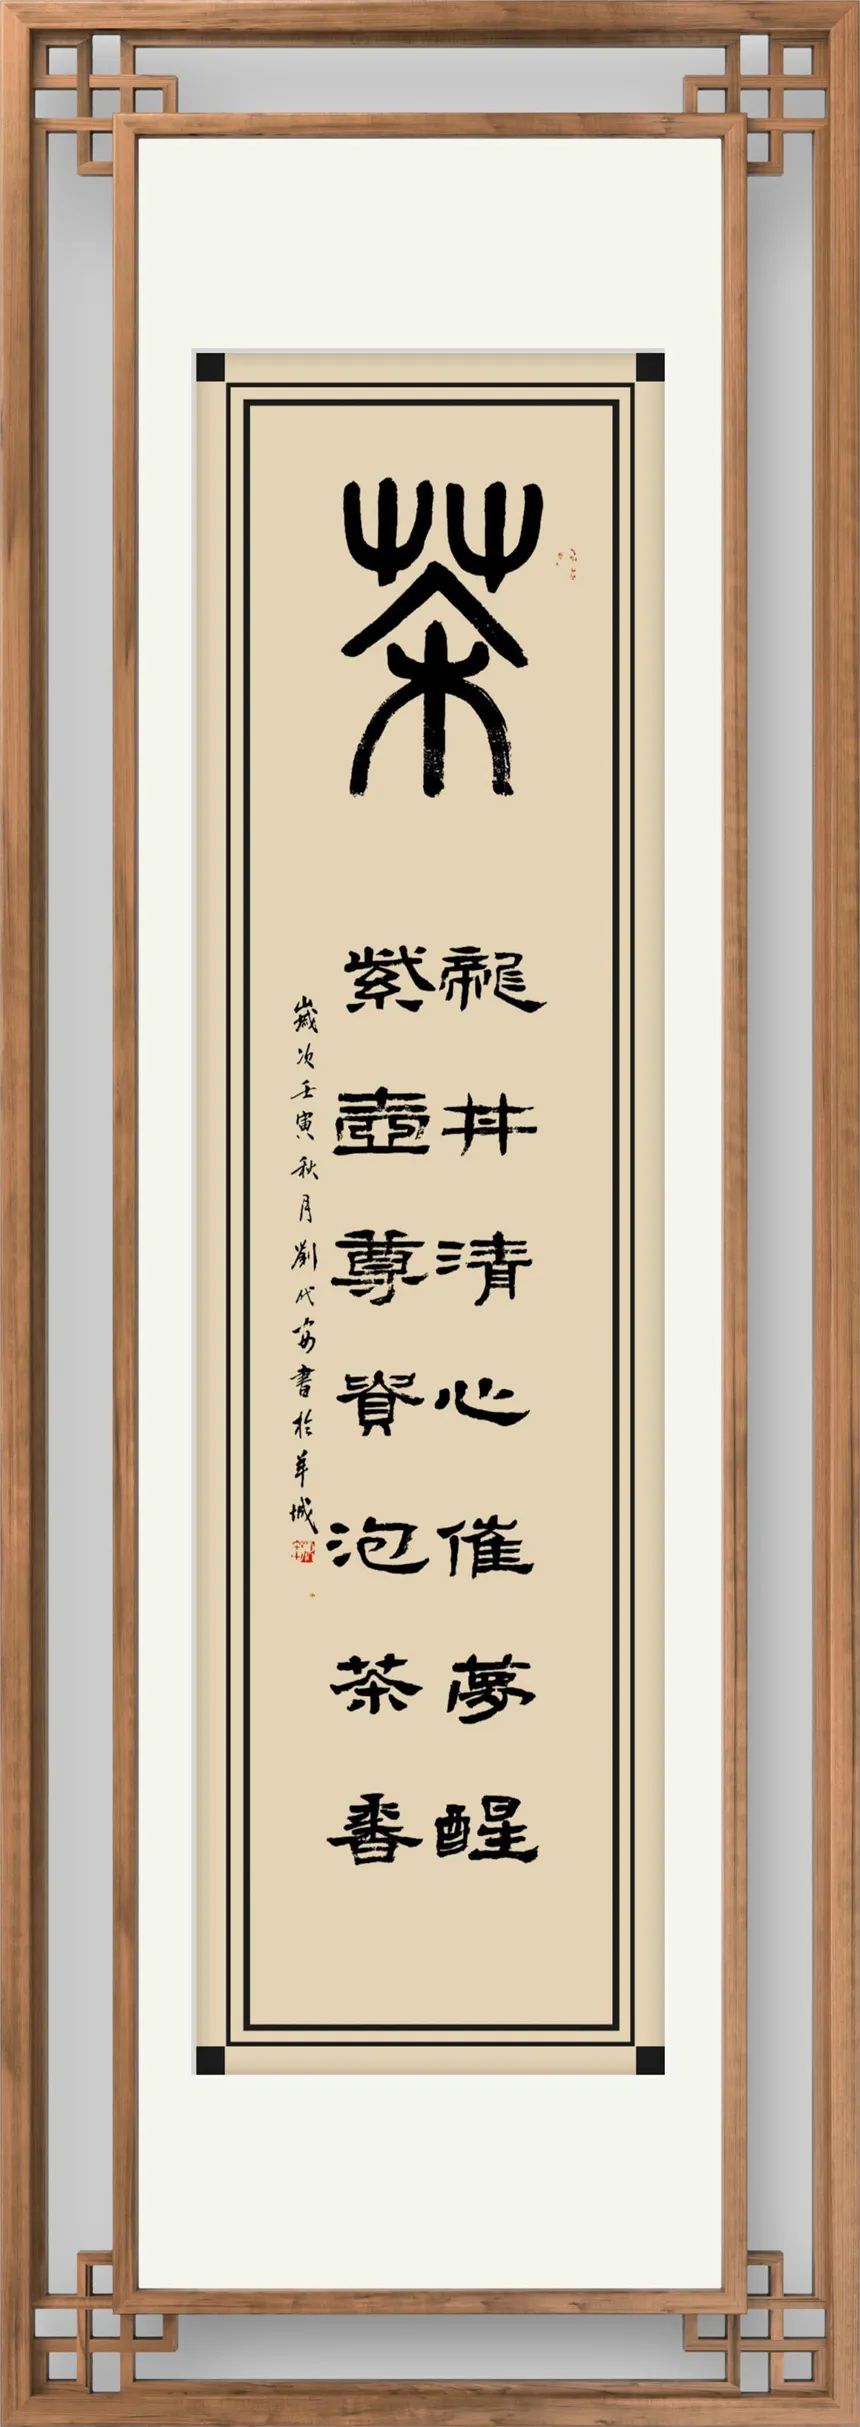 茶
龍井清心催夢醒
紫壺尊貴泡茶香
歲次壬寅秋月劉代安書於羊城